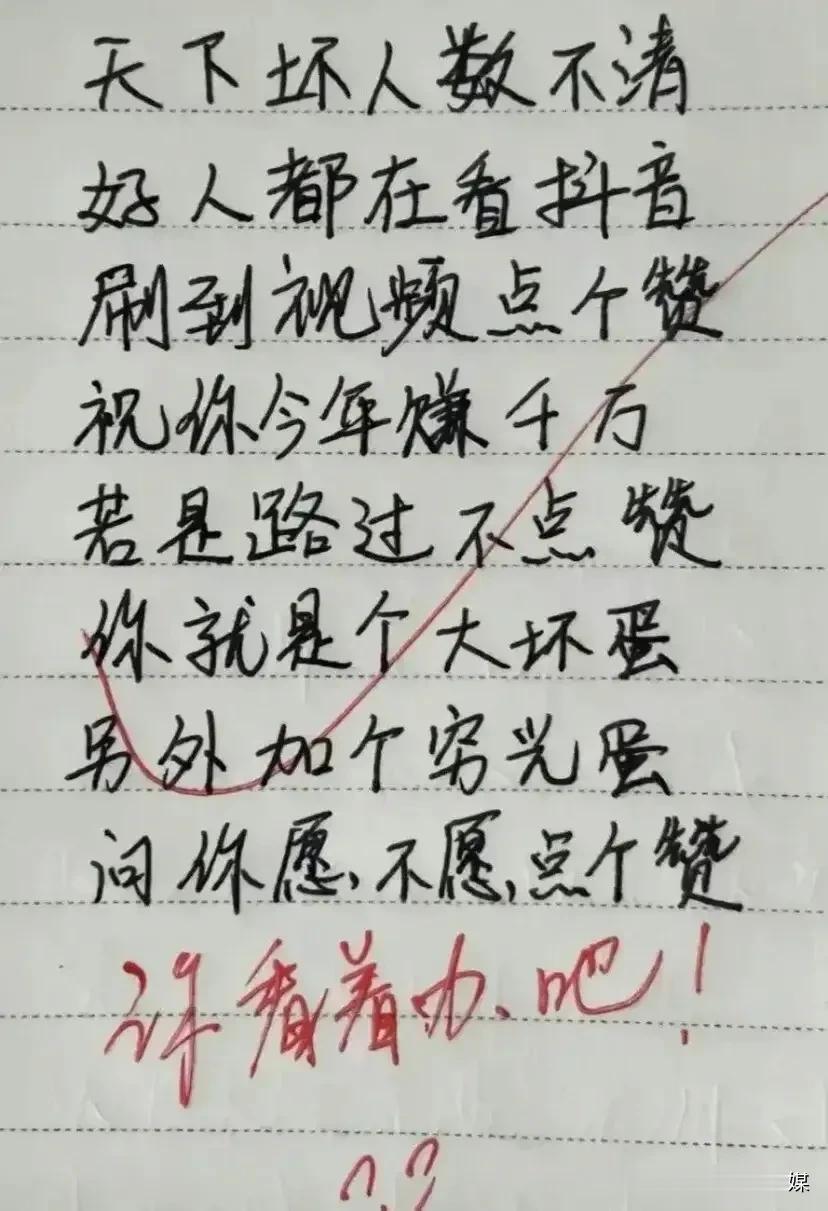 天下坏人数不清
好人都在看抖音
刷到视频点个赞
祝你今年赚千万
若是路过不点赞
你就是个大坏蛋
另外加个穷光蛋
问你愿、不愿、点个赞
看着办、吧！
??
媒